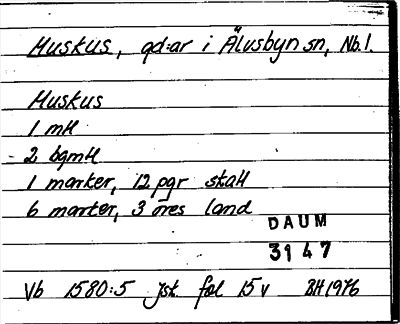 Muskus, gd:ar i Älvsbyn sn, Nb.l.
Muskus
1 mtl
2 bgmtl
1 marker, 12 pgr skatt
6 marker, 3 öres land
DAUM
3147
Vb 1580:5 Jst. fol 15 v BH 1976